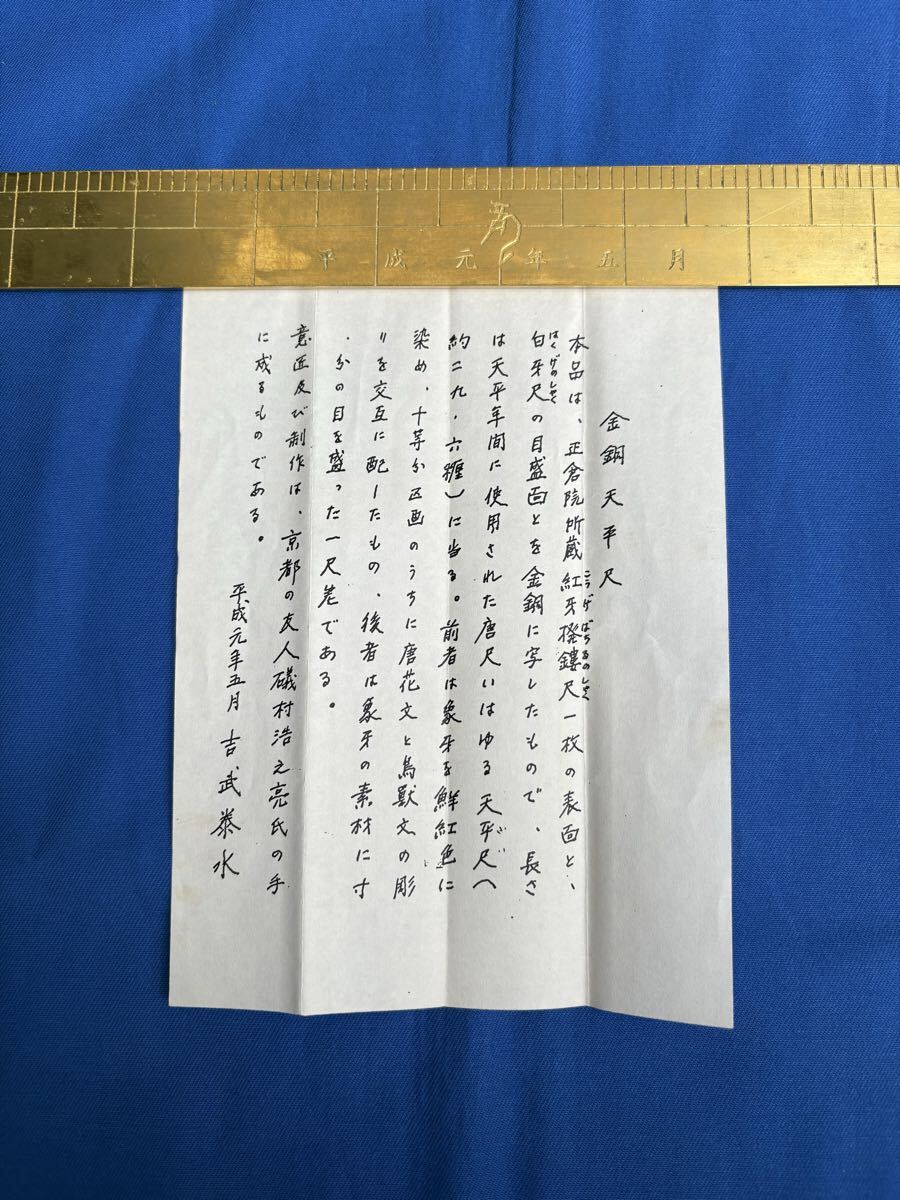 平成元年五月
金銅天平尺
本品は、正倉院所蔵紅牙撥鏤尺一枚の表面と、
こうげばちるのしゃく
白牙尺の目盛面とを金銅に写したもので、長さ
はくげのしゃく
は天平年間に使用された唐尺いはゆる天平尺(
約二九・六糎)に当る。前者は象牙を鮮紅色に
染め、十等分区画のうちに唐花文と鳥獣文の彫
りを交互に配したもの、後者は象牙の素材に寸
・分の目を盛った一尺差である。
意匠及び制作は、京都の友人礒村浩之亮氏の手
に成るものである。
平成元年五月 吉武泰水